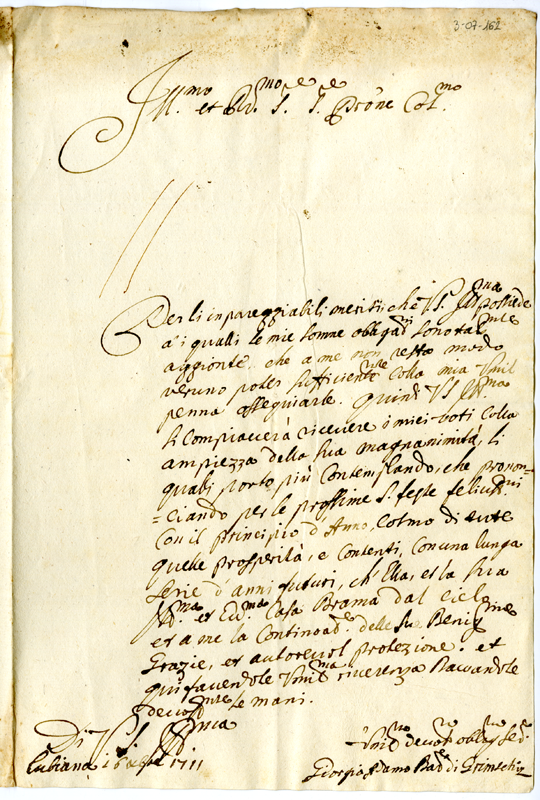 3-07-162
Ill.mo et Rd.mo S.e S.e Prône Col.mo
Per li inpareggiabili meritij che V.S. Ill.ma possiede
a i qualli le mie somme obligaz.ni sono tal.nte
aggionte, che a me non resta modo
veruno poter sufficiente.nte colla mia umil
penna esseguiarle. Quindi V.S. Ill.ma
si Compiacerà ricevere i miei voti colla
ampiezza della sua magnanimità, li
quali porto più Contemplando, che pronon=
=ciando per le prossime S. feste felicis.mi
Con il principio d'Anno, Colmo di tutte
quelle prosperità, e Contenti, con una lunga
serie d'anni futuri, ch'Ella, et la sua
Ill.ma et Ecc.ma Casa Brama dal cielo
et a me la Continoad.e delle su. Benig.me
Grazie, et autorevol protezione. et
qui facendole Umil.ma riverenza Bacciandole
devot.nte le mani.
Di V.S. Ill.ma
Lubiana 16 1711
Umil.mo devot.o oblig.mo Ser.
Giorgio Adamo Bar. di Grimschiz